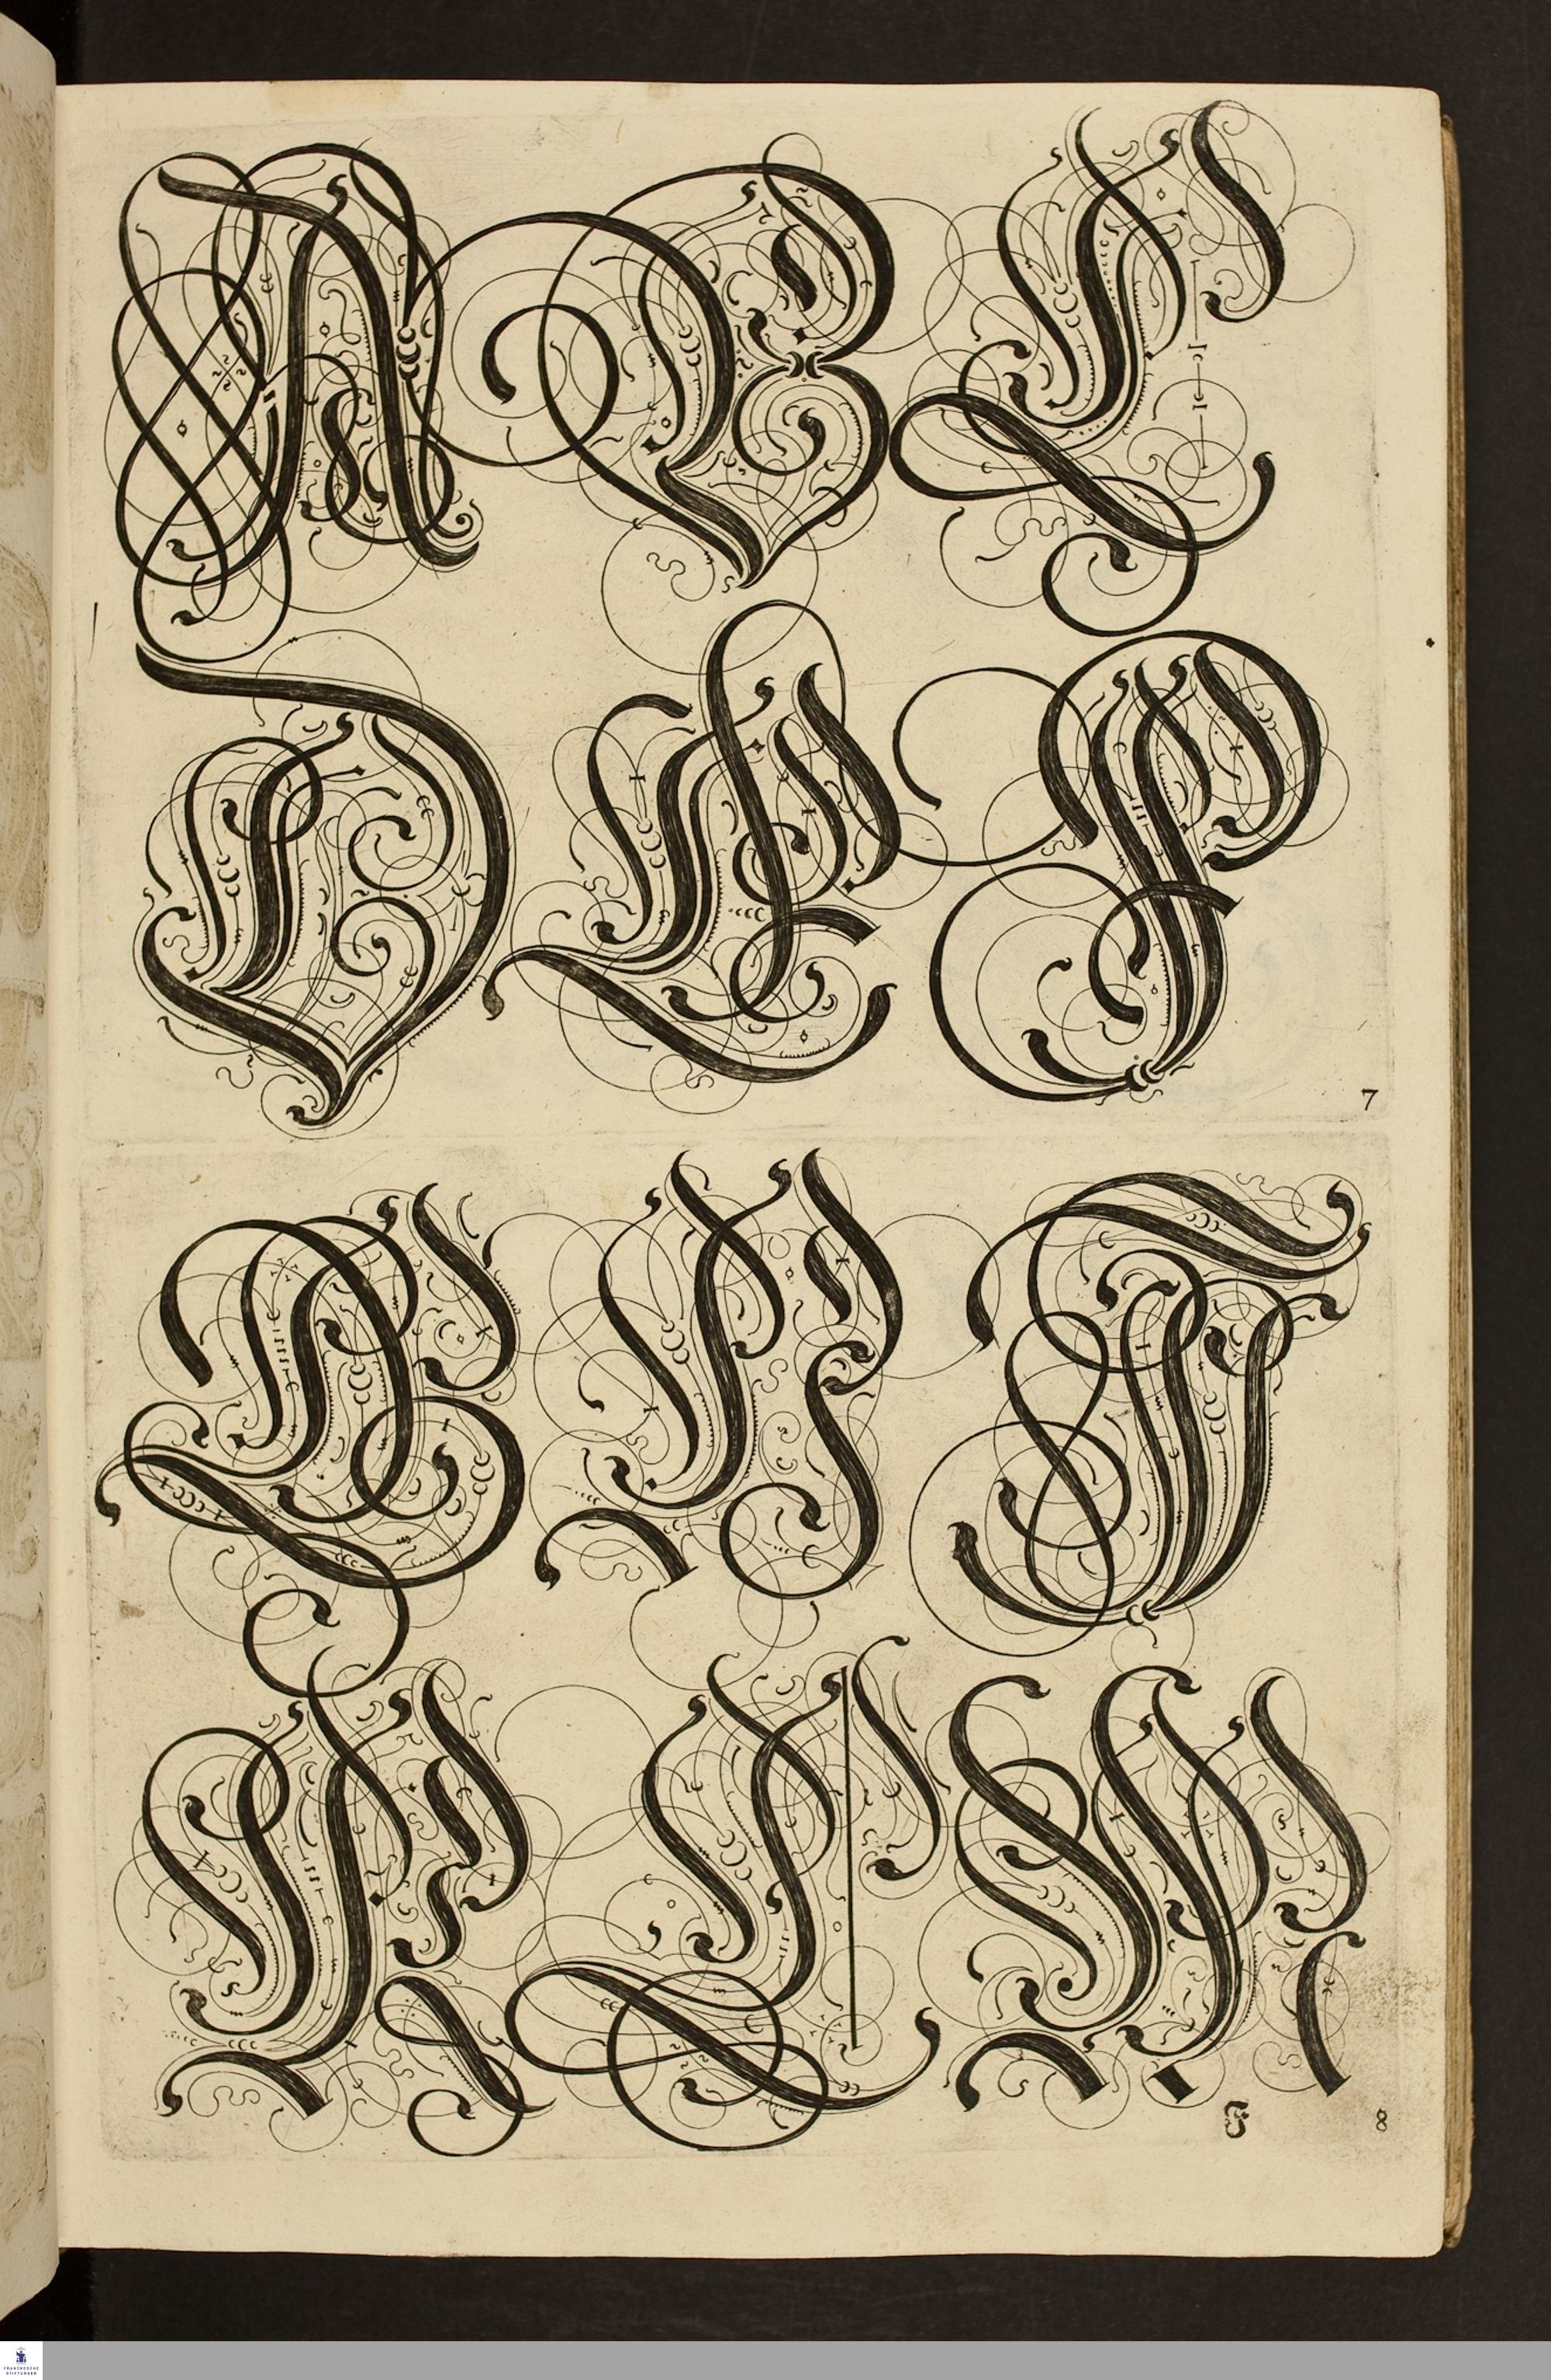 A B C
D E F
7
G H I
K L M
F 8
FRANCKESCHE
STIFTUNGEN